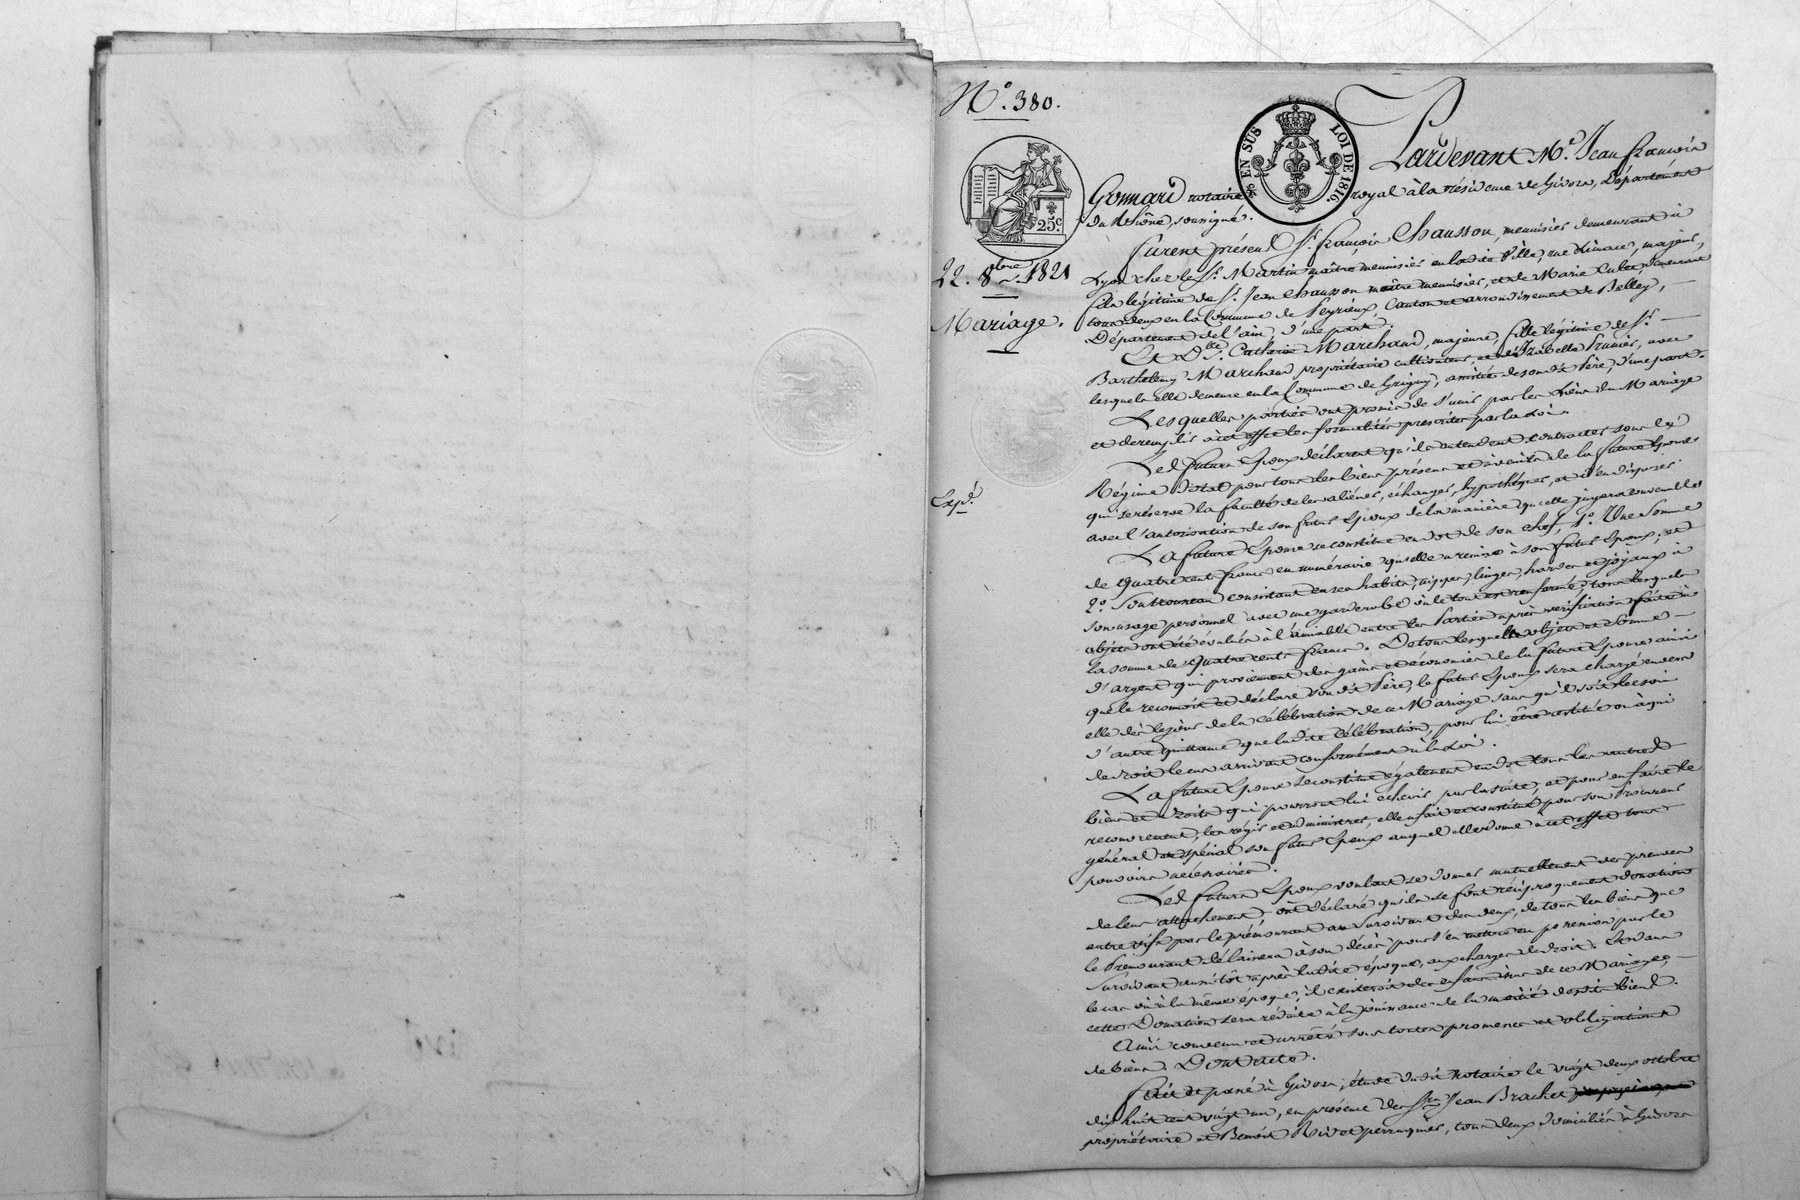 N.° 380.
EN SUS LOI DE 1816.
25c.
22. 8bre 1821
Mariage.
Expd.
Pardevant Me. Jean François
Gonnard notaire royal à la résidence de Givors, Département
du Rhône, soussigné.
Furent présens Sr. François Chausson, menuisier demeurant à
Lyon chez le Sr. Martin maître menuisier en ladite Ville, rue majeur,
fils légitime de Sr. Jean Chausson maître menuisier, et de Marie Cubet, demeurant
tous deux en la Commune de Peyrieux, Canton et arrondissement de Belley,
Département de l'ain, d'une part.
Et Dlle. Catherine Marchand, majeure, fille légitime de Sr.
Barthelemy Marchand propriétaire cultivateur, et d'Izabelle Prunier, avec
lesquels elle demeure en la Commune de Grigny, assistée de son dit Père, d'une part.
Lesquelles parties ont promis de s'unir par les liens du Mariage
et de remplir à cet effet les formalités prescrites par la Loi.
Les futurs Epoux déclarent qu'ils entendent contracter sous le
Régime Dotal pour tous les biens présens et à venir de la future Epouse
qui se réserve la faculté de les aliéner, échanger, hypothéquer, et d'en disposer
avec l'autorisation de son futur Epoux de la manière qu'elle jugera convenable.
La future Epouse se constitue en dot de son chef, 1.° Une Somme
de Quatre cents francs en numéraire qu'elle a remise à son futur Epoux, et
2.° Son trousseau consistant en ses habits, nippes, linges, hardes et joyaux à
son usage personnel avec une garderobe où le tout est renfermé, tous lesquels
objets ont été évalués à l'amiable entre les Parties après vérification faite à
la somme de Quatre cents francs. De tous lesquels objets et somme
d'argent qui proviennent des gains et économies de la future Epouse ainsi
que le reconnoit et déclare son dit Père, le futur Epoux sera chargé envers
elle dès le jour de la Célébration de ce Mariage sans qu'il soit besoin
d'autre quittance que ladite Célébration, pour lui être restitué ou à qui
de droit le cas arrivant conformément à la Loi.
La future Epouse se constitue également en dot tous les autres
biens et droits qui pourront lui echeoir par la suite, et pour en faire le
recouvrement, les régir et administrer, elle en fait et constitue pour son Procureur
général et spécial son futur Epoux auquel elle donne à cet effet tous
pouvoirs nécessaires.
Les futurs Epoux voulant se donner mutuellement des preuves
de leur attachement, ont déclaré qu'ils se font réciproquement donation
entre vifs par le prémourant au Survivant des deux, de tous les biens que
le Prémourant délaissera à son décès pour s'en mettre en possession par le
Survivant aussitôt après ladite époque, aux charges de droit. Et dans
le cas où à la même époque, il existeroit des enfans issus de ce Mariage,
cette Donation sera réduite à la jouissance de la moitié desdits biens.
Ainsi convenu et arrêté sous toutes promesses et obligations
de biens. Dont acte.
Fait et passé à Givors, étude dudit notaire le vingt deux octobre
dix huit cent vingt un, en présence des Srs. Jean Brachet
propriétaire et Benoit Rivot perruquier, tous deux domiciliés à Givors